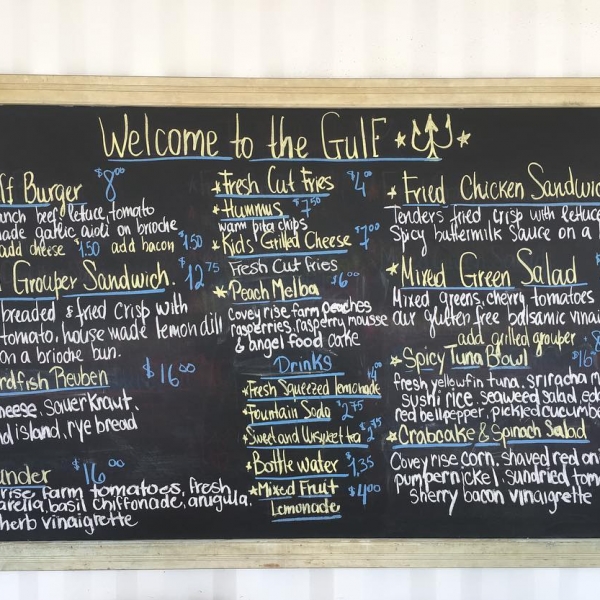 Welcome to the Gulf
lf Burger $8.00
unch beef, letuce, tomato
made garlic aioli on brioche
add cheese $1.50 add bacon $1.50
Grouper Sandwich. $12.75
breaded & fried crisp with
tomato, house made lemon dill
on a brioche bun.
rdfish Reuben $16.00
heese, sauerkraut,
nd island, rye bread
under $16.00
rise farm tomatoes, fresh
arella, basil chiffonade, arugula,
herb vinaigrette
Fresh Cut Fries $4.00
Hummus $7.50
warm pita chips
Kid's Grilled Cheese $7.00
Fresh Cut fries
Peach Melba $6.00
Covey rise farm peaches
raspberries, raspberry mousse
& angel food cake
Drinks
Fresh Squeezed lemonade
Fountain Soda $2.75
Sweet and Unsweet tea $2.75
Bottle water $1.35
Mixed Fruit $4.00
Lemonade
Fried Chicken Sandwic
Tenders fried crisp with lettuc
Spicy buttermilk sauce on a
Mixed Green Salad $
Mixed greens, cherry tomatoes
our gluten free balsamic vinai
add grilled grouper $8
Spicy Tuna Bowl $16
fresh yellowfin tuna, sriracha m
sushi rice, seaweed salad, ed
red bell pepper, pickled cucumbe
Crabcake & Spinach Salad
Covey rise corn, shaved red oni
pumpernickel, sundried tom
sherry bacon vinaigrette